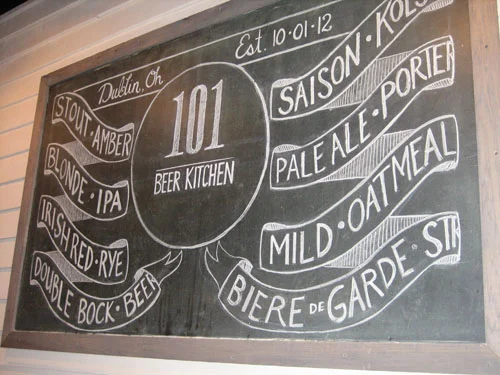 Dublin, Oh
Est. 10·01·12
101
BEER KITCHEN
STOUT · AMBER
BLONDE · IPA
IRISH RED · RYE
DOUBLE BOCK · BEER
SAISON · KOLS
PALE ALE · PORTER
MILD · OATMEAL
BIERE DE GARDE · STR